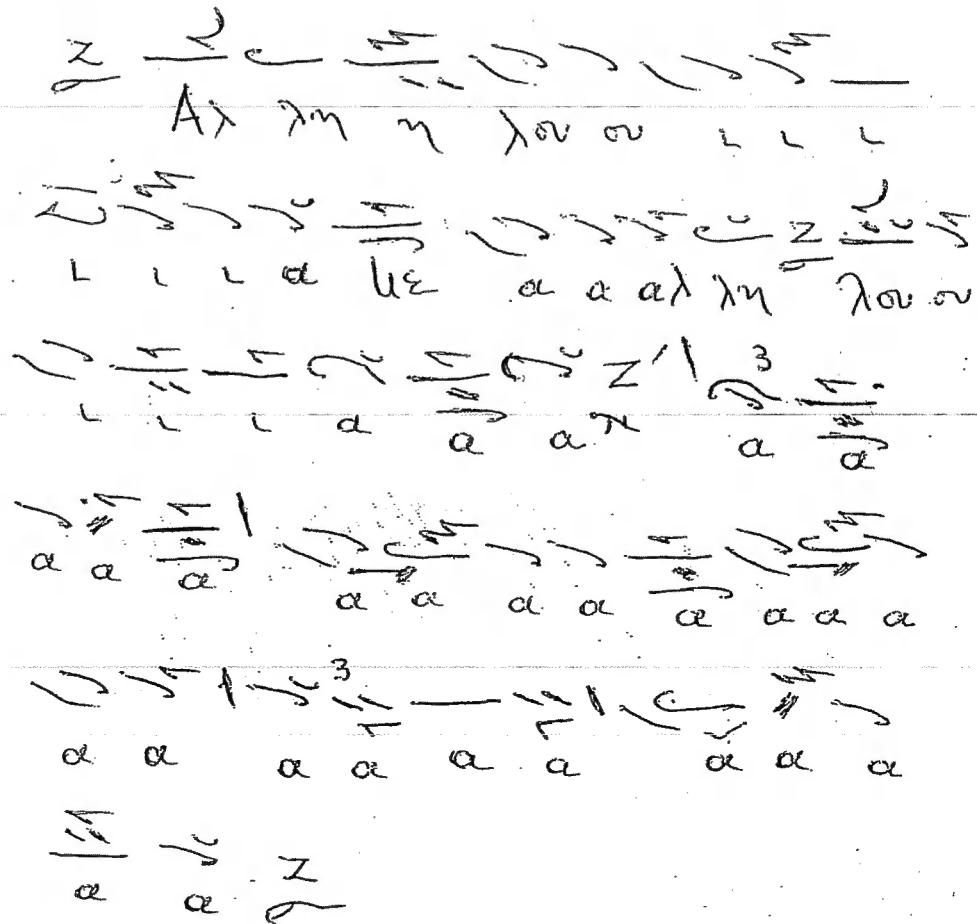 Αλ λη η λου ου ι ι ι
ι ι ι α με α α αλ λη λου ου
ι ι ι α α α π α α
α α α α α α α α α α α
α α α α α α α α α
α α